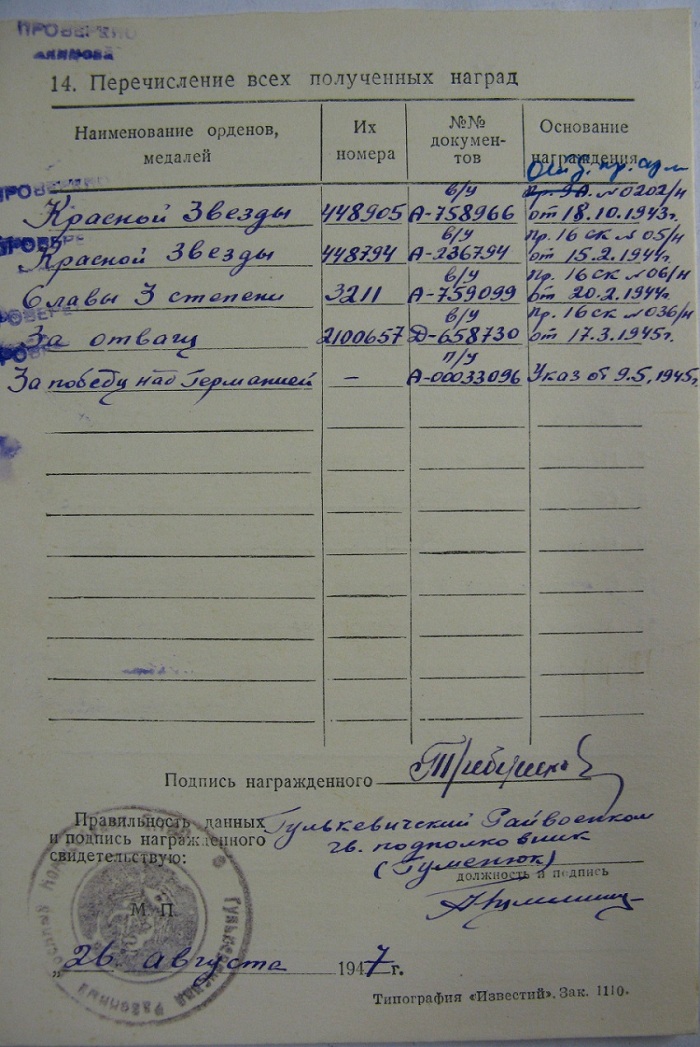 ПРОВЕРЕНО
14. Перечисление всех полученных наград
Наименование орденов, медалей
Их номера
№№ документов
Основание награждения
ПРОВЕРЕНО
Красной Звезды 448905 в/у А-758966 пр. 9А. № 0202/н от 18.10.1943г.
ПРОВЕРЕ
Красной Звезды 448794 в/у А-236794 Пр. 16 ск № 05/н от 15.2.1944г.
Славы 3 степени 3211 в/у А-759099 Пр. 16 ск № 06/н от 20.2.1944г.
ПРОВЕРЕ
За отвагу 2100657 в/у Д-658730 Пр. 16 ск № 036/н от 17.3.1945г.
За победу над Германией — п/у А-00033096 Указ от 9.5.1945г.
Подпись награжденного
Правильность данных
и подпись награжденного
свидетельствую:
Гулькевичский Райвоенком
гв. подполковник
(Гуменюк)
должность и подпись
М П
„26 августа 1947 г.
Типография «Известий». Зак. 1110.